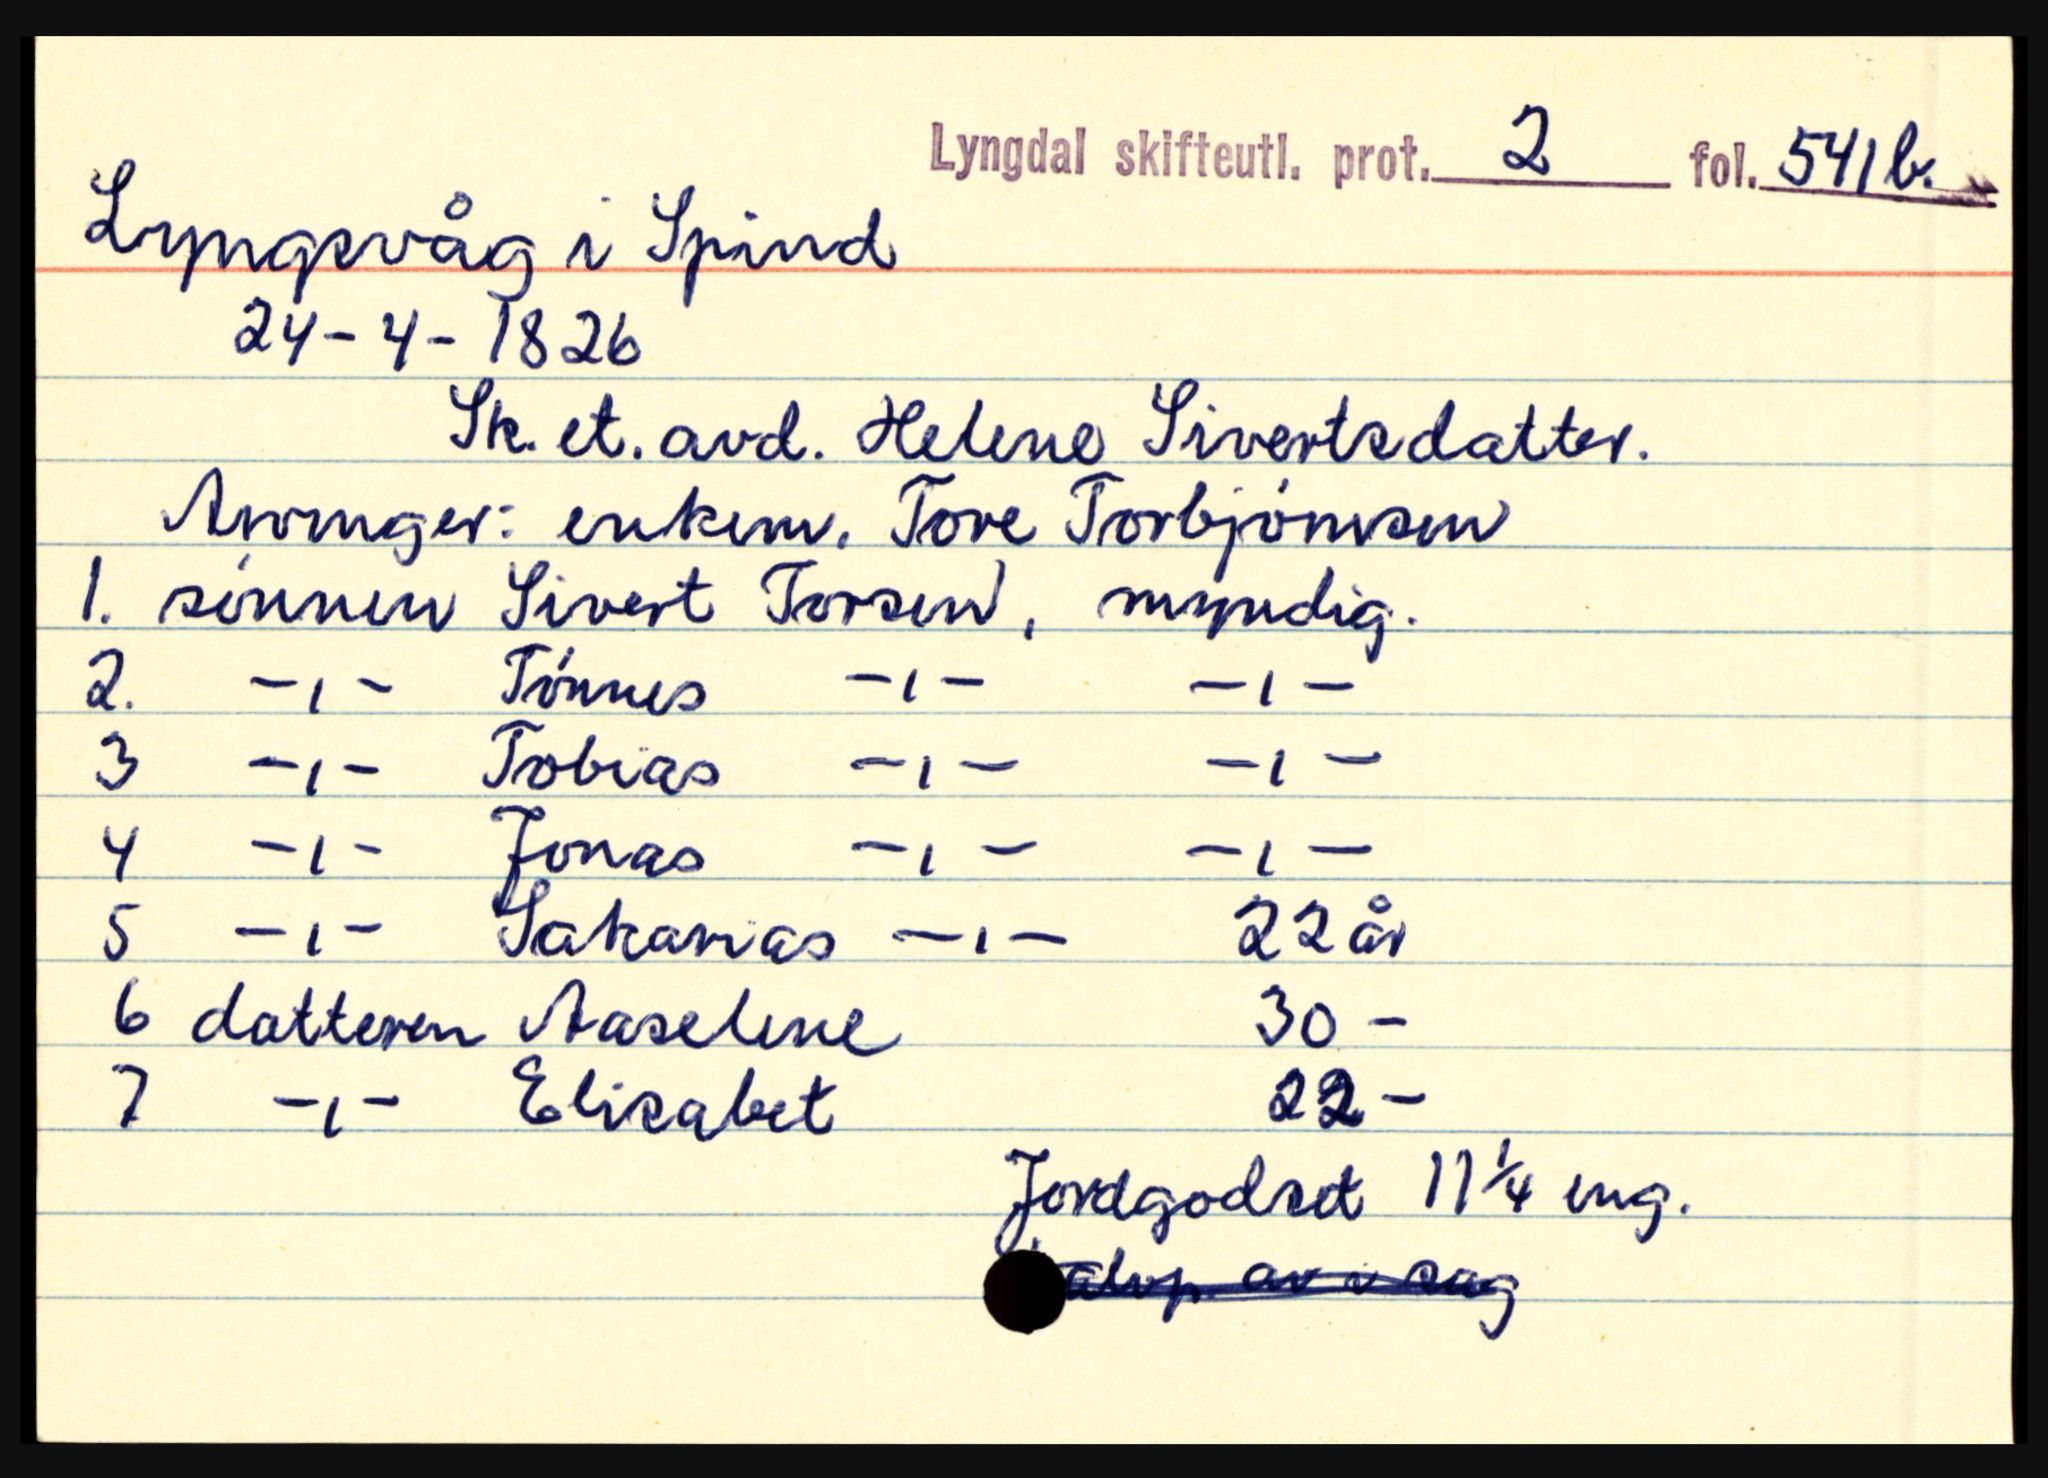 Lyngdal skifteutl. prot. 2 fol. 541b.
Lyngsvåg i Spind
24-4-1826
Sk. et. avd. Helene Sivertsdatter.
Arvinger: enkem. Tore Torbjörnsen
1. sönnen Sivert Torsen, myndig.
2. -ı- Tönnes -ı- -ı-
3 -ı- Tobias -ı- -ı-
4 -ı- Jonas -ı- -ı-
5 -ı- Sakarias -ı- 22 år
6 datteren Aaselene 30 -
7 -ı- Elisabet 22 -
Jordgodset 11 1/4 eng.
av i sag